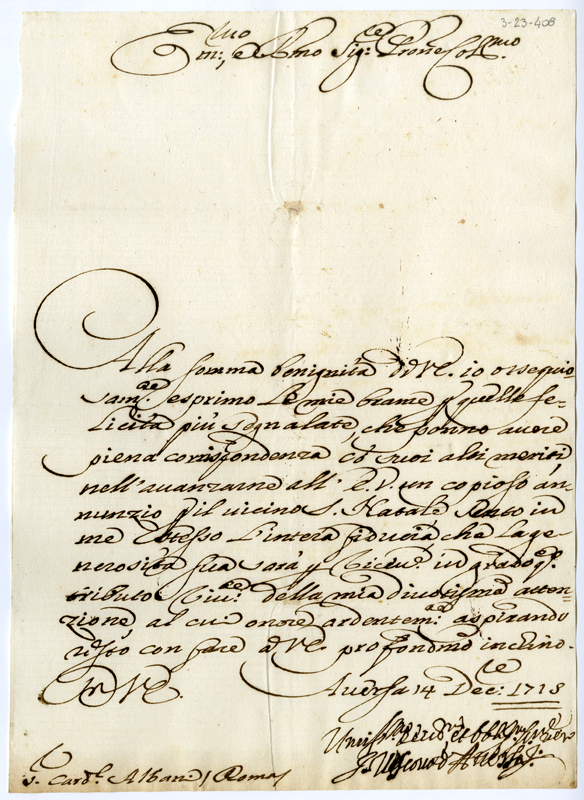 3-23-408
Em.mo e Rmo Sig.re Prone Col.mo
Alla somma benignità di V.E. io ossequio-
sam.te esprimo le mie brame p quelle fe-
licità più segnalate, che ponno avere
piena corrispondenza cō suoi alti meriti,
nell'avanzarne all' E.V. un copioso an-
nunzio p il vicino S. Natale. Sento in
me stesso l'intera fiducia che la ge-
nerosità sua sarà p ricev.e in grado q.o
tributo
della mia divotissima atten-
zione, al cui onore ardentem.te aspirando
resto con fare a V.E. profondmo inchino.
Di V.E. Aversa 14 Dec.re 1718
Vescovo d'Aversa
S. Card.l Albani / Roma /